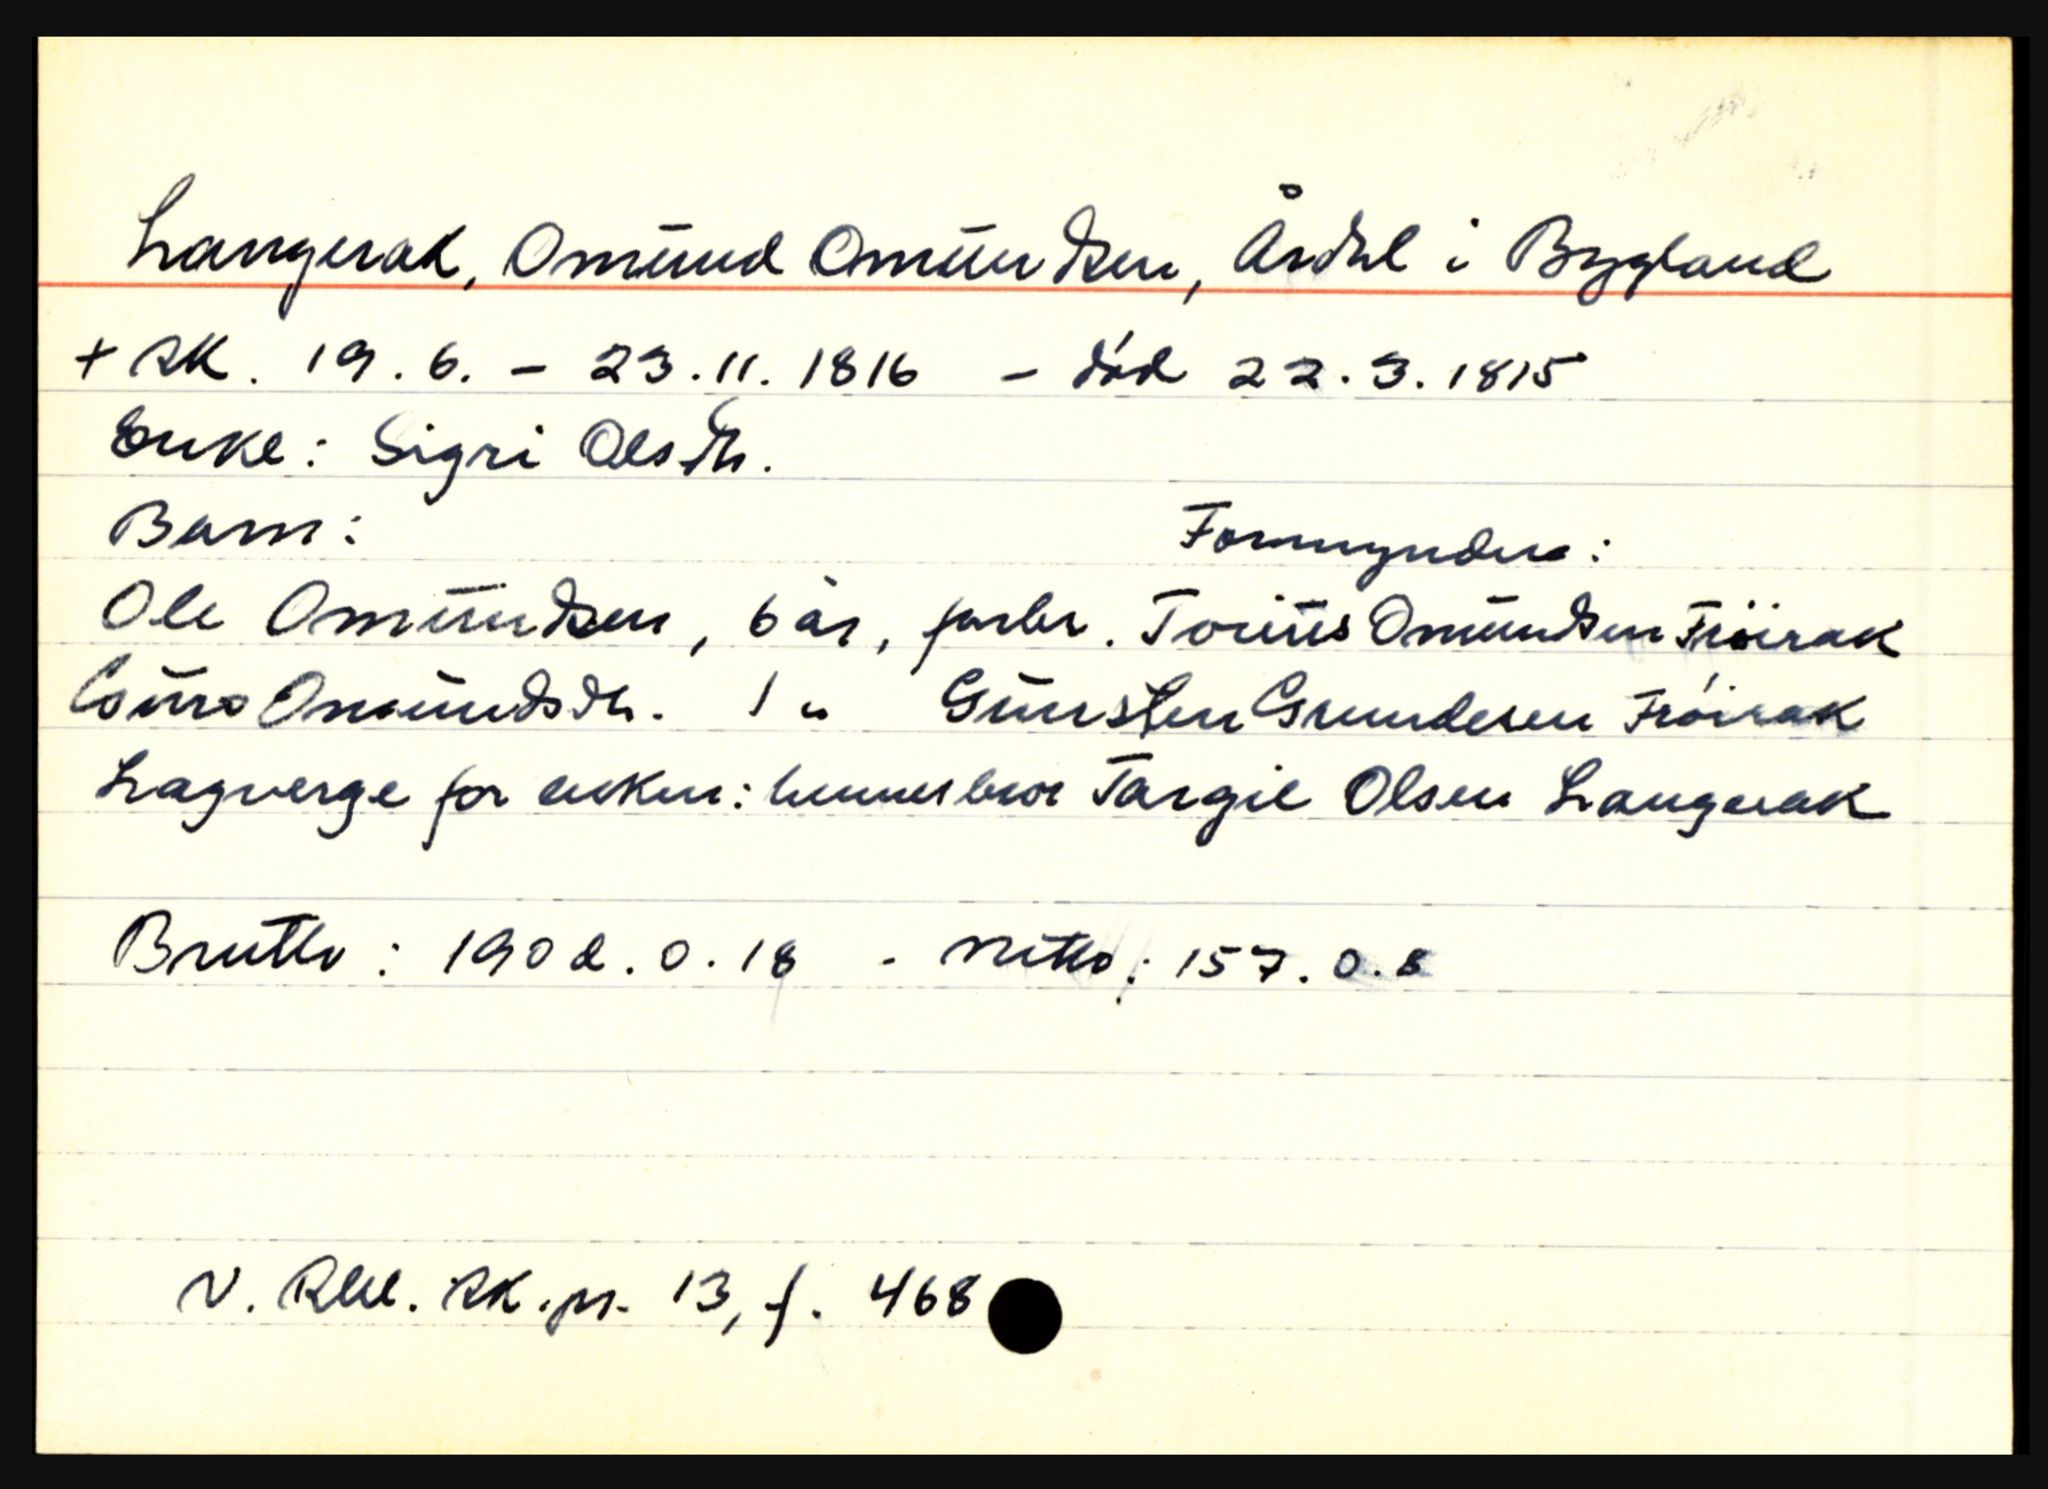 Langerak, Omund Omundsen, Årdal i Bygland
+ sk. 19.6. - 23.11.1816 - död 22.3.1815
Enke: Sigri Olsdtr.
Barn: Formyndere:
Ole Omundsen, 6 år, farbr. Torius Omundsen Fröirak
Guro Omundsdtr. 1 " Gunsten Grundesen Fröirak
Lagverge for enken: hennes bror Targie Olsen Langerak
Brutto: 190 d. 0. 18 - netto: 157. 0. 8
V. Rbl. sk.pr. 13, f. 468